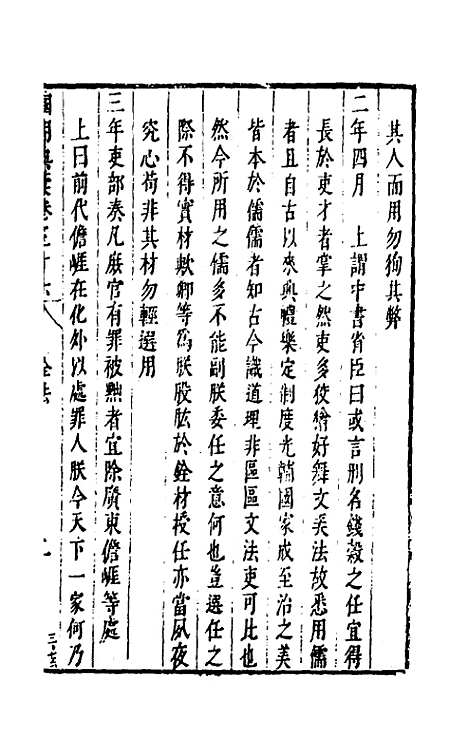 其人而用勿狥其弊
二年四月　上謂中書省臣曰或言刑名錢穀之任宜得
長於吏才者掌之然吏多狡獪好舞文弄法故悉用儒
者且自古以來興禮樂定制度光輔國家成至治之美
皆本於儒儒者知古今識道理非區區文法吏可比也
然今所用之儒多不能副朕委任之意何也豈選任之
際不得實材歟卿等為朕股肱於銓材授任亦當夙夜
究心苟非其材勿輕選用
三年吏部奏凡庶官有罪被黜者宜除廣東儋崖等處
上曰前代儋崖在化外以處罪人朕今天下一家何乃
國朝典彙卷三十六　九